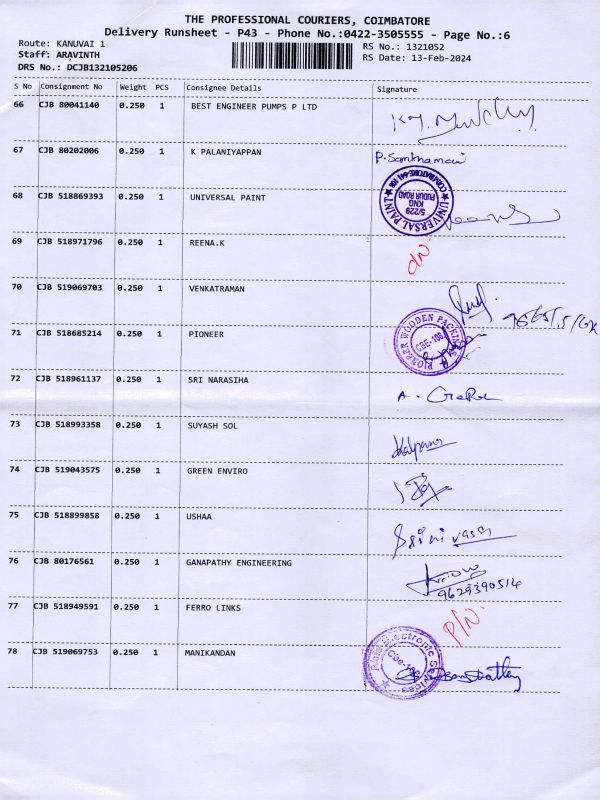 THE PROFESSIONAL COURIERS, COIMBATORE
Delivery Runsheet - P43 - Phone No.:0422-3505555 - Page No.:6
Route: KANUVAI 1
RS No.: 1321052
Staff: ARAVINTH
RS Date: 13-Feb-2024
DRS No.: DCJB132105206
S No Consignment No Weight PCS Consignee Details Signature
66 CJB 80041140 0.250 1 BEST ENGINEER PUMPS P LTD
67 CJB 80202006 0.250 1 K PALANIYAPPAN P. Santhamani
68 CJB 518869393 0.250 1 UNIVERSAL PAINT
UNIVERSAL PAINT
5/229
KNG
PUDUR ROAD
COIMBATORE-641 108
69 CJB 518971796 0.250 1 REENA.K
70 CJB 519069703 0.250 1 VENKATRAMAN
71 CJB 518685214 0.250 1 PIONEER
PIONEER WOODEN PACKINGS
72 CJB 518961137 0.250 1 SRI NARASIHA
73 CJB 518993358 0.250 1 SUYASH SOL Kalpana
74 CJB 519043575 0.250 1 GREEN ENVIRO
75 CJB 518899858 0.250 1 USHAA Srinivasan
76 CJB 80176561 0.250 1 GANAPATHY ENGINEERING
9629390514
77 CJB 518949591 0.250 1 FERRO LINKS P/N.
78 CJB 519069753 0.250 1 MANIKANDAN
Electronic Services